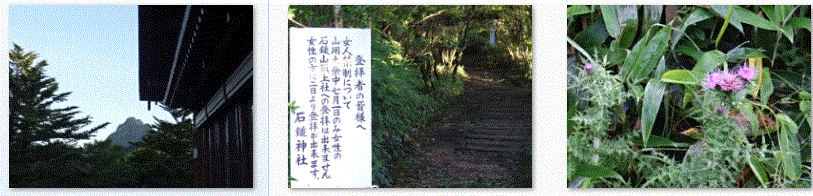 登拝者の皆様へ
女人禁制について
山開き登中七月一日のみ女性の
石鎚山頂上社への登拝は出来ません
女性の方は二日より登拝が出来ます。
石鎚神社